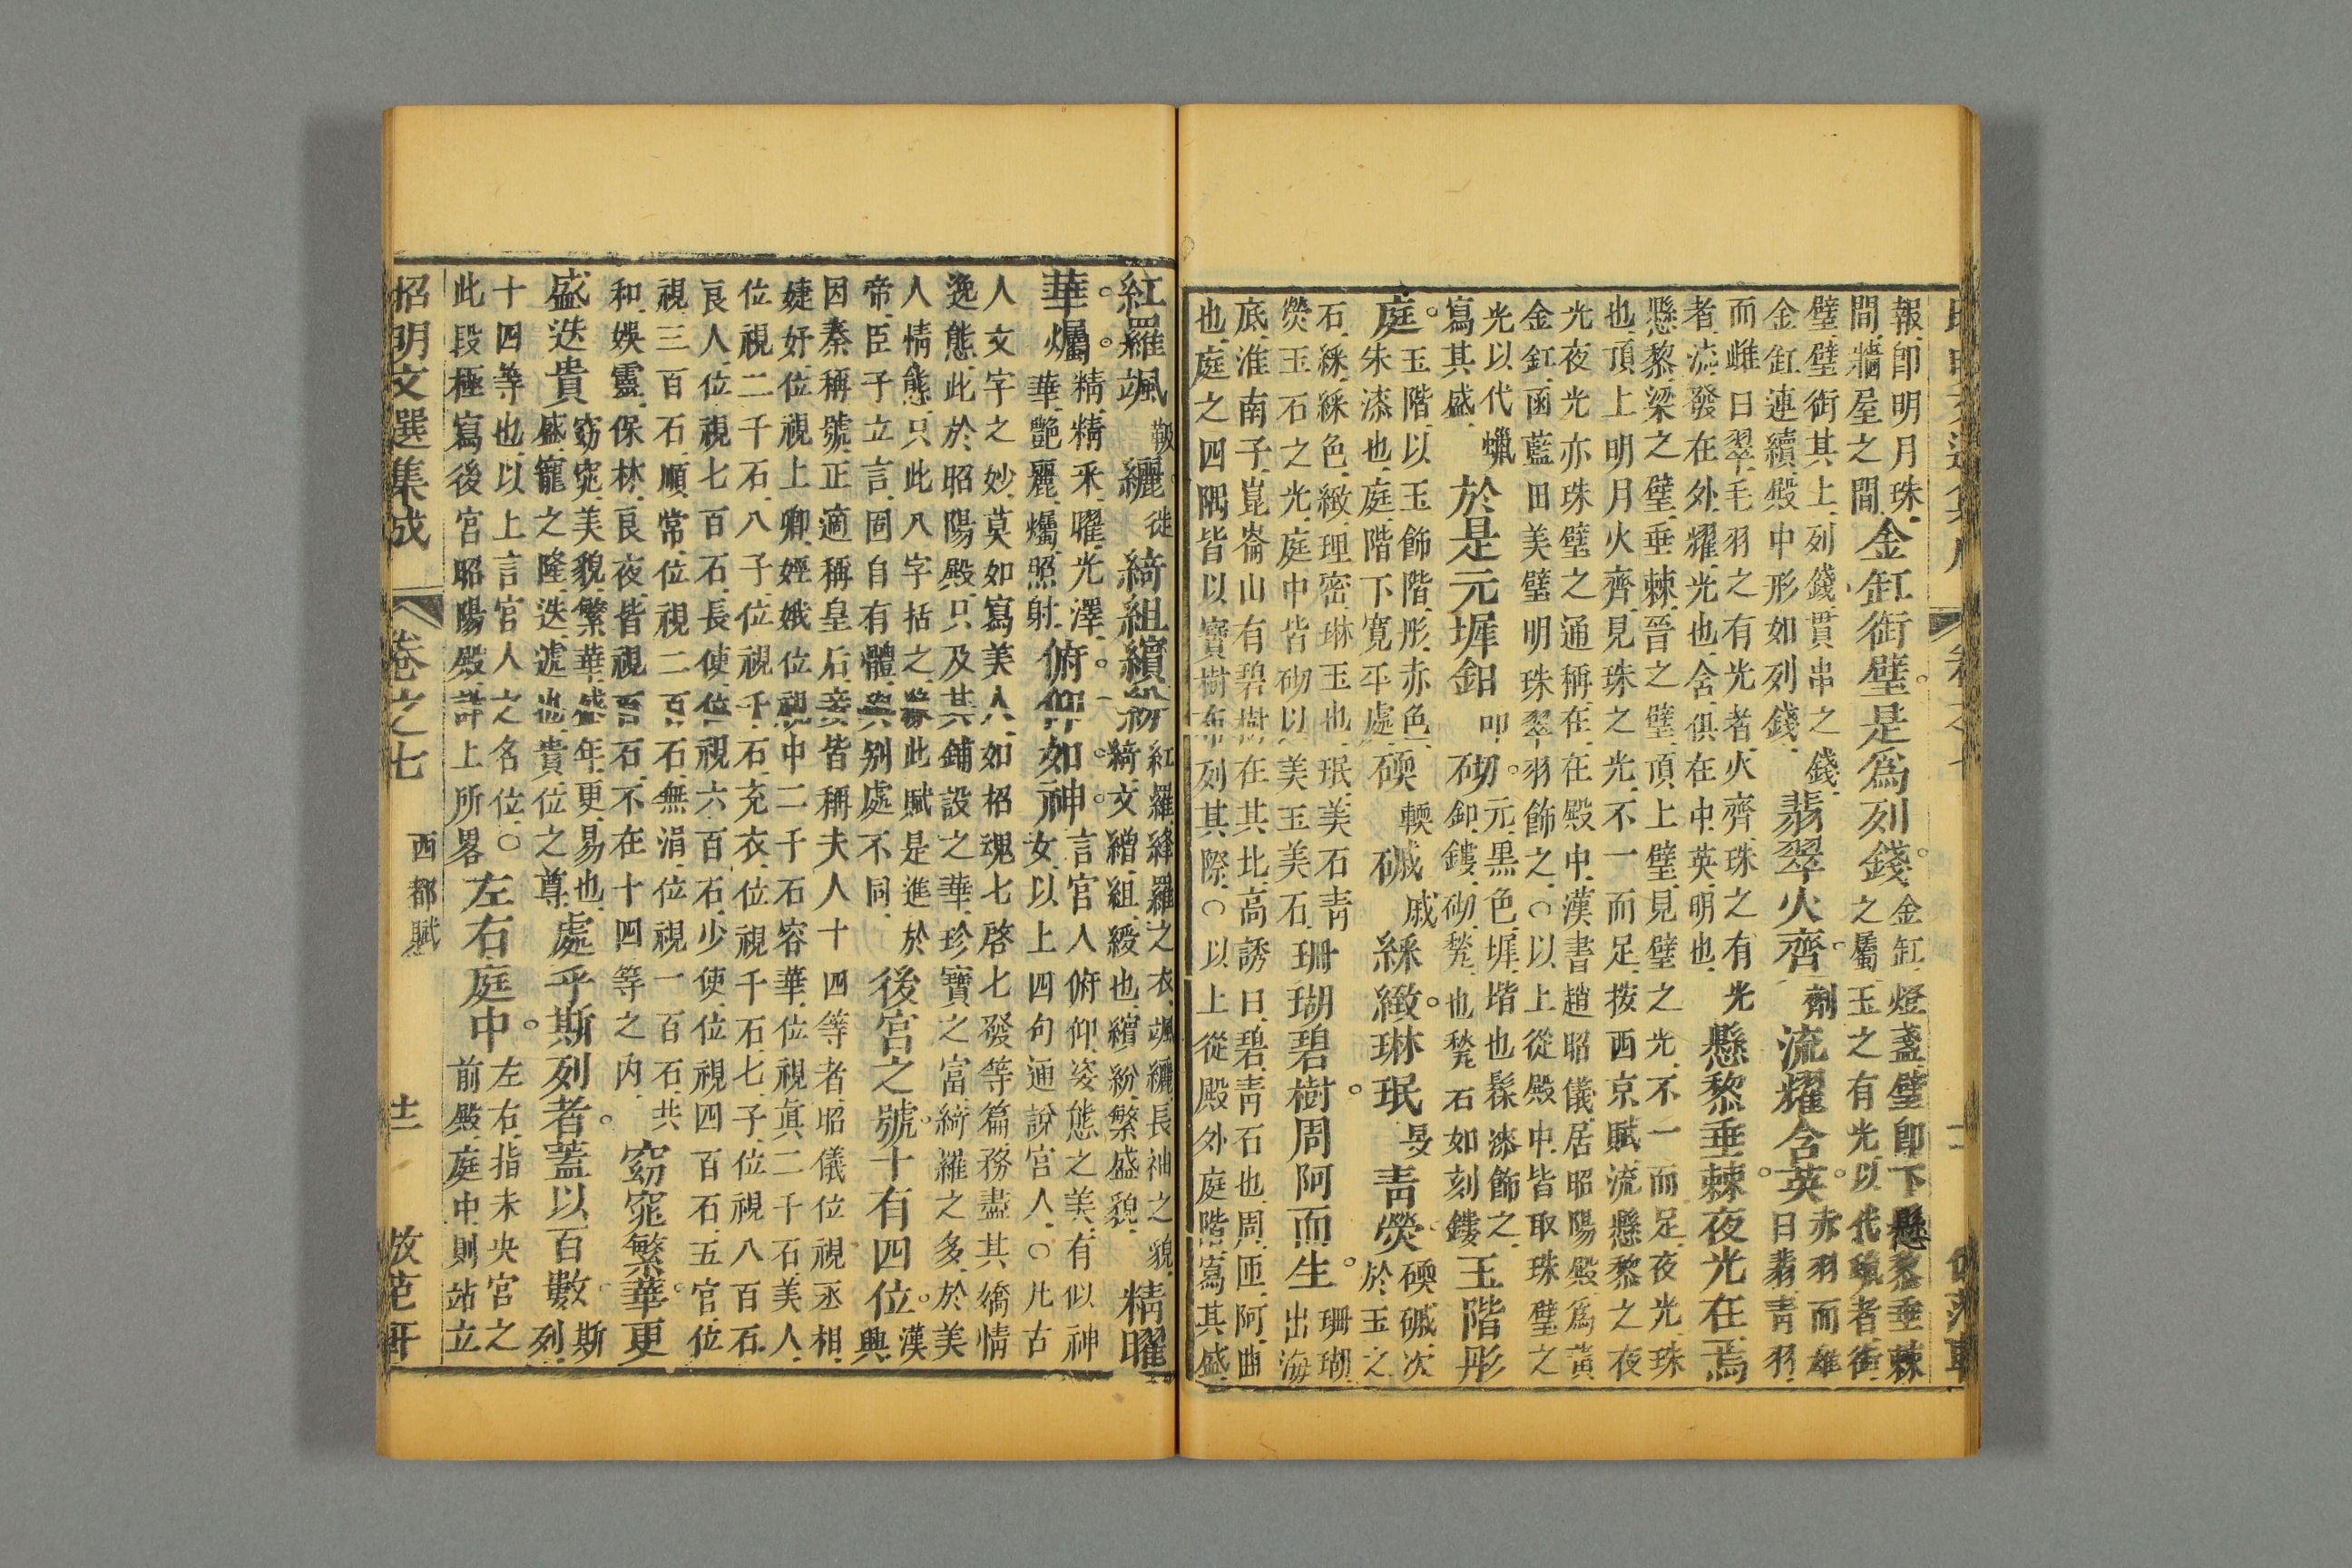 報卽明月珠
間牆屋之間
金缸銜璧是為列錢
金缸燈盞璧卽下懸黎垂棘
之屬玉之有光以代蠟者銜
璧璧銜其上列錢貫串之錢
金缸連續殿中形如列錢
翡翠火齊
劑
流耀含英
赤羽而雄
曰翡青羽
而雌曰翠毛羽之有光者火齊珠之有光
者流發在外耀光也含俱在中英明也
懸黎垂棘夜光在焉
懸黎梁之璧垂棘晉之璧頂上璧見璧之光不一而足夜光珠
也頂上明月火齊見珠之光不一而足按西京賦流懸黎之夜
光夜光亦珠璧之通稱在在殿中漢書趙昭儀居昭陽殿為黃
金釭函藍田美璧明珠翠羽飾之○以上從殿中皆取珠璧之
光以代蠟
寫其盛
於是元墀釦
叩
砌
元黑色墀堦也髹漆飾之
釦鏤砌甃也甃石如刻鏤
玉階彤
庭
玉階以玉飾階彤赤色
朱漆也庭階下寬平處
碝
輭
磩
戚
綵緻琳珉
旻
青熒
碝磩次
於玉之
石綵綵色緻理密琳玉也珉美石青
熒玉石之光庭中皆砌以美玉美石
珊瑚碧樹周阿而生
珊瑚
出海
底淮南子崑崙山有碧樹在其北高誘曰碧青石也周匝阿曲
也庭之四隅皆以寶樹布列其際○以上從殿外庭階寫其盛
紅羅颯
靸
纚
徙
綺組繽紛
紅羅絳羅之衣颯纚長袖之貌
綺文繒組綬也繽紛繁盛貌
精曜
華爥
精精釆曜光澤
華艷麗爥照射
俯仰如神
言官人俯仰姿態之美有似神
女以上四句通說宮人○凡古
人文字之妙莫如寫美人如招魂七啓七發等篇務盡其嬌情
逸態此於昭陽殿只及其鋪設之華珍寶之富綺羅之多於美
人情態只此八字括之蓋此賦是進於
帝臣子立言固自有體與別處不同
後宮之號十有四位
漢
興
因秦稱號正適稱皇后妾皆稱夫人十四等者昭儀位視丞相
婕妤位視上卿娙娥位視中二千石容華位視真二千石美人
位視二千石八子位視千石充衣位視千石七子位視八百石
良人位視七百石長使位視六百石少使位視四百石五官位
視三百石順常位視二百石無涓位視一百石共
和娛靈保林良夜皆視百石不在十四等之内
窈窕繁華更
盛迭貴
窈窕美貌繁華盛年更易也
盛寵之隆迭遞也貴位之尊
處乎斯列者蓋以百數
斯
列
十四等也以上言官人之名位○
此段極寫後宮昭陽殿計上所畧
左右庭中
左右指未央宮之
前殿庭中則站立
昭明文選集成 卷之七 西都賦 十二 倣范軒